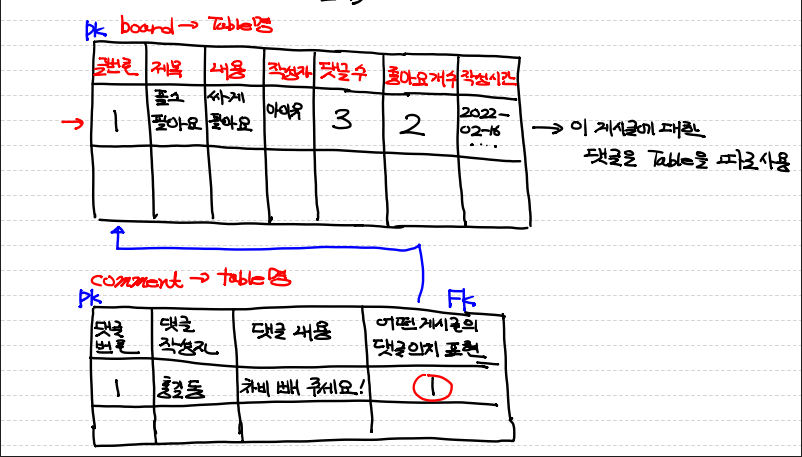 PK board → Table명
글번호 제목 내용 작성자 댓글수 좋아요개수 작성시간
1 플스 팔아요 싸게 팔아요 아아유 3 2 2022-02-16 ....
→ 이 게시글에 대한
댓글은 Table을 따로 사용
comment → table명
PK FK
댓글 번호 댓글 작성자 댓글 내용 어떤 게시글의 댓글인지 표현
1 홍길동 차비 빼 주세요! 1